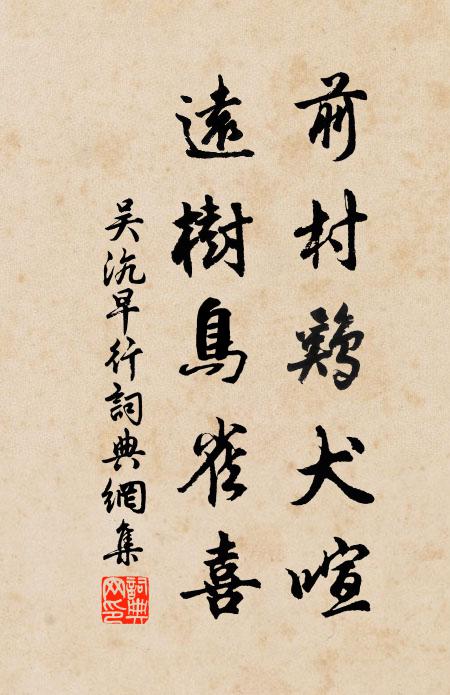 前村鷄犬喧
遠樹鳥雀喜
吴沆早行詞典網集
詞典網印